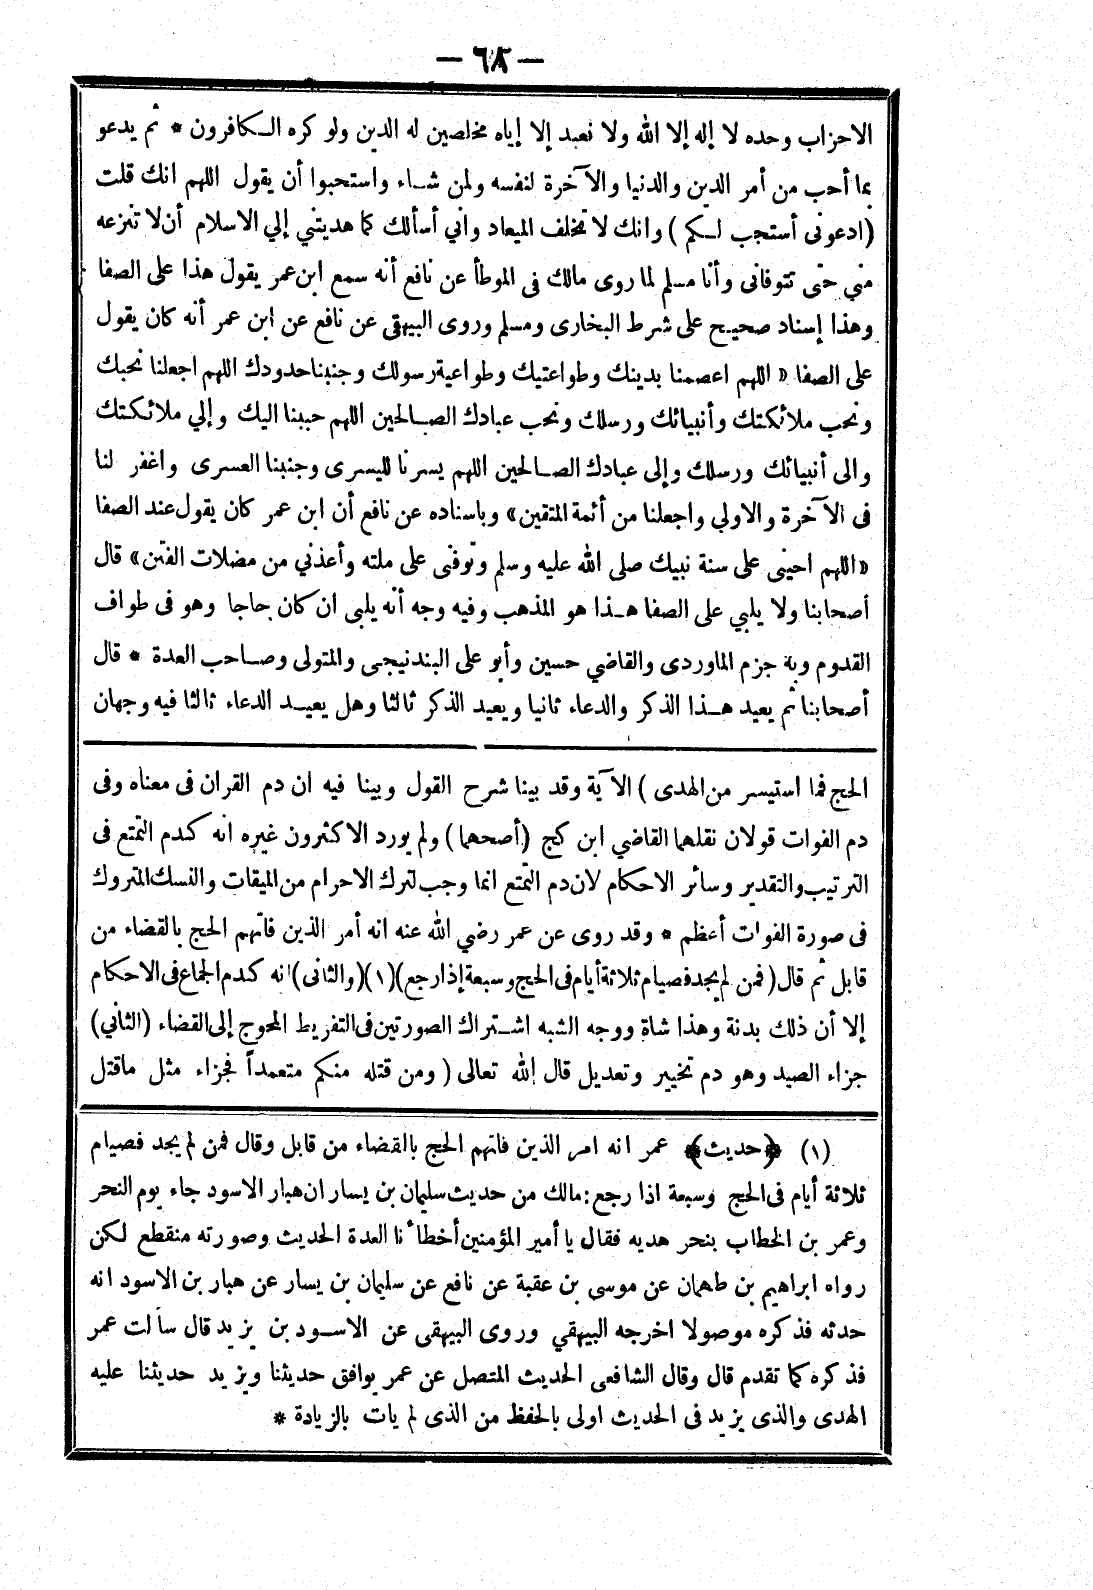 — ٦٨ —
الاحزاب وحده لا إله إلا الله ولا نعبد إلا إياه مخلصين له الدين ولو كره الكافرون * ثم يدعو
بما أحب من أمر الدين والدنيا والآخرة لنفسه ولمن شاء واستحبوا أن يقول اللهم انك قلت
(ادعونى أستجب لكم) وانك لا تخلف الميعاد واني أسألك كما هديتني إلي الاسلام أن لا تنزعه
مني حتى تتوفانى وأنا مسلم لما روى مالك فى الموطأ عن نافع أنه سمع ابن عمر يقول هذا على الصفا
وهذا إسناد صحيح على شرط البخارى ومسلم وروى البيهقى عن نافع عن ابن عمر أنه كان يقول
على الصفا « اللهم اعصمنا بدينك وطواعتيك وطواعية رسولك وجنبنا حدودك اللهم اجعلنا نحبك
ونحب ملائكتك وأنبيائك ورسلك ونحب عبادك الصالحين اللهم حببنا اليك وإلي ملائكتك
والى أنبيائك ورسلك وإلى عبادك الصالحين اللهم يسرنا لليسرى وجنبنا العسرى واغفر لنا
فى الآخرة والاولي واجعلنا من أئمة المتقين» وباسناده عن نافع أن ابن عمر كان يقول عند الصفا
«اللهم احينى على سنة نبيك صلى الله عليه وسلم وتوفنى على ملته وأعذني من مضلات الفتن» قال
أصحابنا ولا يلبي على الصفا هذا هو المذهب وفيه وجه أنه يلبى ان كان حاجا وهو فى طواف
القدوم وبه جزم الماوردى والقاضي حسين وأبو على البندنيجى والمتولى وصاحب العدة * قال
أصحابنا ثم يعيد هذا الذكر والدعاء ثانيا ويعيد الذكر ثالثا وهل يعيد الدعاء ثالثا فيه وجهان
الحج فما استيسر من الهدى) الآية وقد بينا شرح القول وبينا فيه ان دم القران فى معناه وفى
دم الفوات قولان نقلهما القاضي ابن كج (أصحهما) ولم يورد الاكثرون غيره انه كدم التمتع فى
الترتيب والتقدير وسائر الاحكام لان دم التمتع انما وجب لترك الاحرام من الميقات والنسك المتروك
فى صورة الفوات أعظم * وقد روى عن عمر رضي الله عنه انه أمر الذين فاتهم الحج بالقضاء من
قابل ثم قال (فمن لم يجد فصيام ثلاثة أيام فى الحج وسبعة إذا رجع)(١)(والثانى) انه كدم الجماع فى الاحكام
إلا أن ذلك بدنة وهذا شاة ووجه الشبه اشتراك الصورتين فى التفريط المحوج إلى القضاء (الثاني)
جزاء الصيد وهو دم تخيير وتعديل قال الله تعالى (ومن قتله منكم متعمداً فجزاء مثل ما قتل
(١) ﴿حديث﴾ عمر انه امر الذين فاتهم الحج بالقضاء من قابل وقال فمن لم يجد فصيام
ثلاثة أيام فى الحج وسبعة اذا رجع: مالك من حديث سليمان بن يسار ان هبار الاسود جاء يوم النحر
وعمر بن الخطاب ينحر هديه فقال يا أمير المؤمنين أخطأنا العدة الحديث وصورته منقطع لكن
رواه ابراهيم بن طهمان عن موسى بن عقبة عن نافع عن سليمان بن يسار عن هبار بن الاسود انه
حدثه فذكره موصولا اخرجه البيهقي وروى البيهقى عن الاسود بن يزيد قال سألت عمر
فذكره كما تقدم قال وقال الشافعى الحديث المتصل عن عمر يوافق حديثنا ويزيد حديثنا عليه
الهدى والذى يزيد فى الحديث اولى بالحفظ من الذى لم يات بالزيادة *